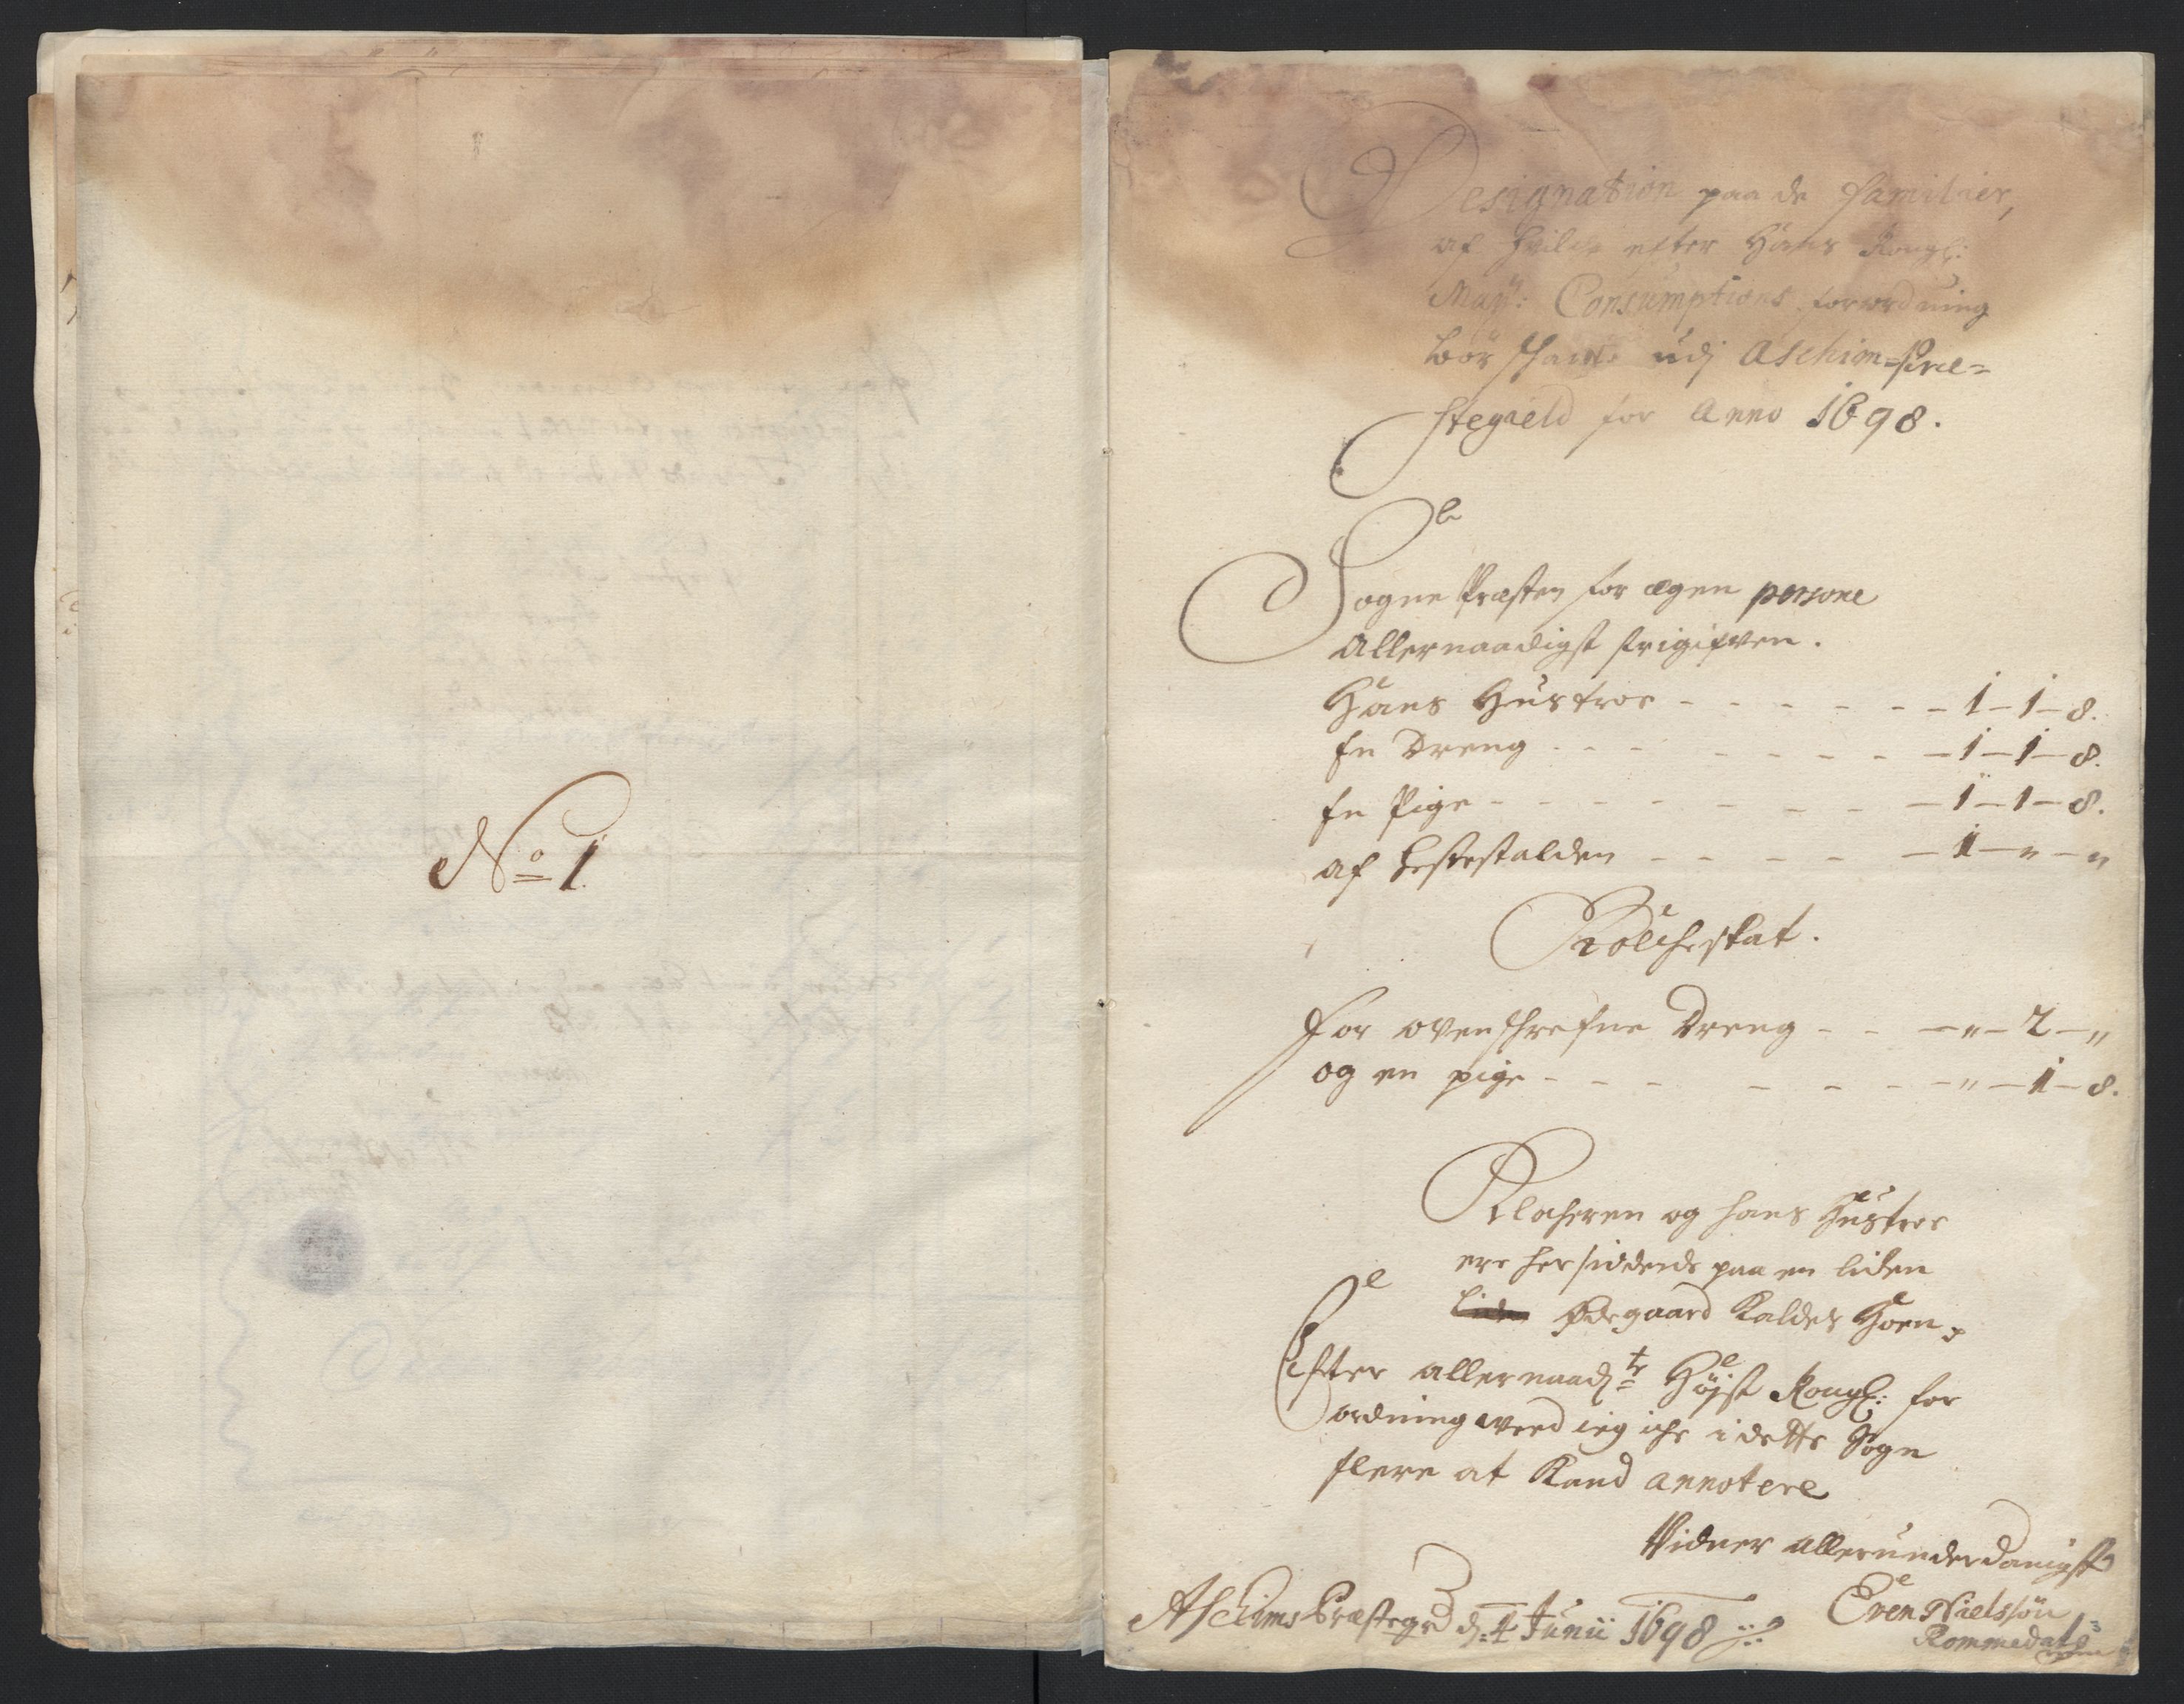 No 1.
Designation paa de familier,
af huilke efter Hans Kongl:
May: Consumptions forordning
bör schatte udj Aschim-Præ-
stegield for Anno 1698.
Sogne Præsten for egen persone
Allernaadigst frigifven.
Hans Hustroe - - - - - - - 1 - 1 - 8.
En Dreng - - - - - - - 1 - 1 - 8.
En Pige - - - - - - - 1 - 1 - 8.
af Hestestalden - - - - - 1 - " - "
Kölche skat.
For ovenschrefne Dreng - - - " - 2 - "
og en pige - - - - - - - " - 1 - 8.
Klocheren og hans Hustroe
ere her siddende paa en liden
Ødegaard kaldes Hoen
Efter allernaad: Höjst Kongl: for
ordning veed ieg iche i dette Sogn
flere at kand annotere
Vidner allerunderdanigst
Aschims Præstegrd d: 4 Junii 1698
Even Nielssön